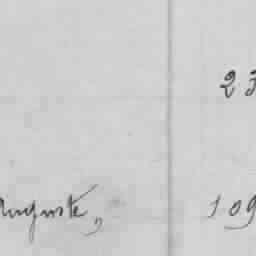 23
Auguste, 109